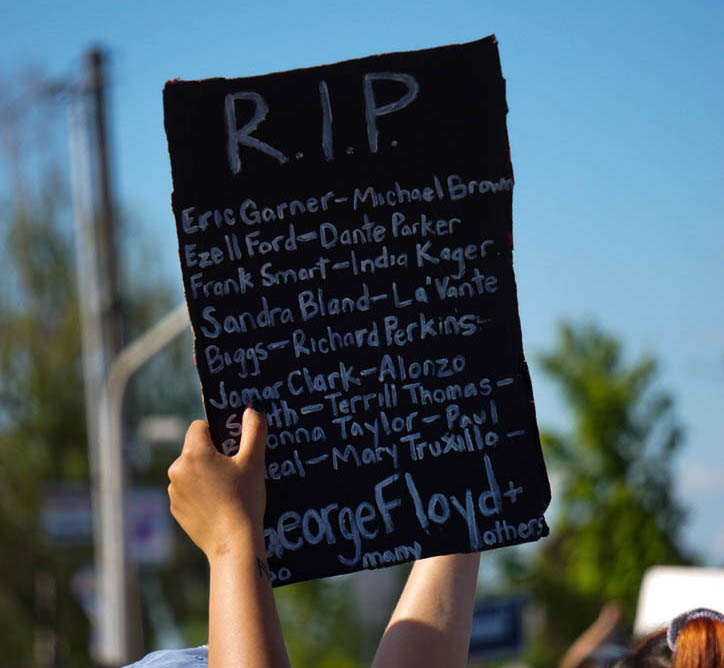 R.I.P.
Eric Garner-Michael Brown
Ezell Ford-Dante Parker
Frank Smart-India Kager
Sandra Bland-La'Vante
Biggs-Richard Perkins-
Jamar Clark-Alonzo
S th-Terrill Thomas-
B onna Taylor-Paul
eal-Mary Truxillo-
eorge Floyd+
oo many others